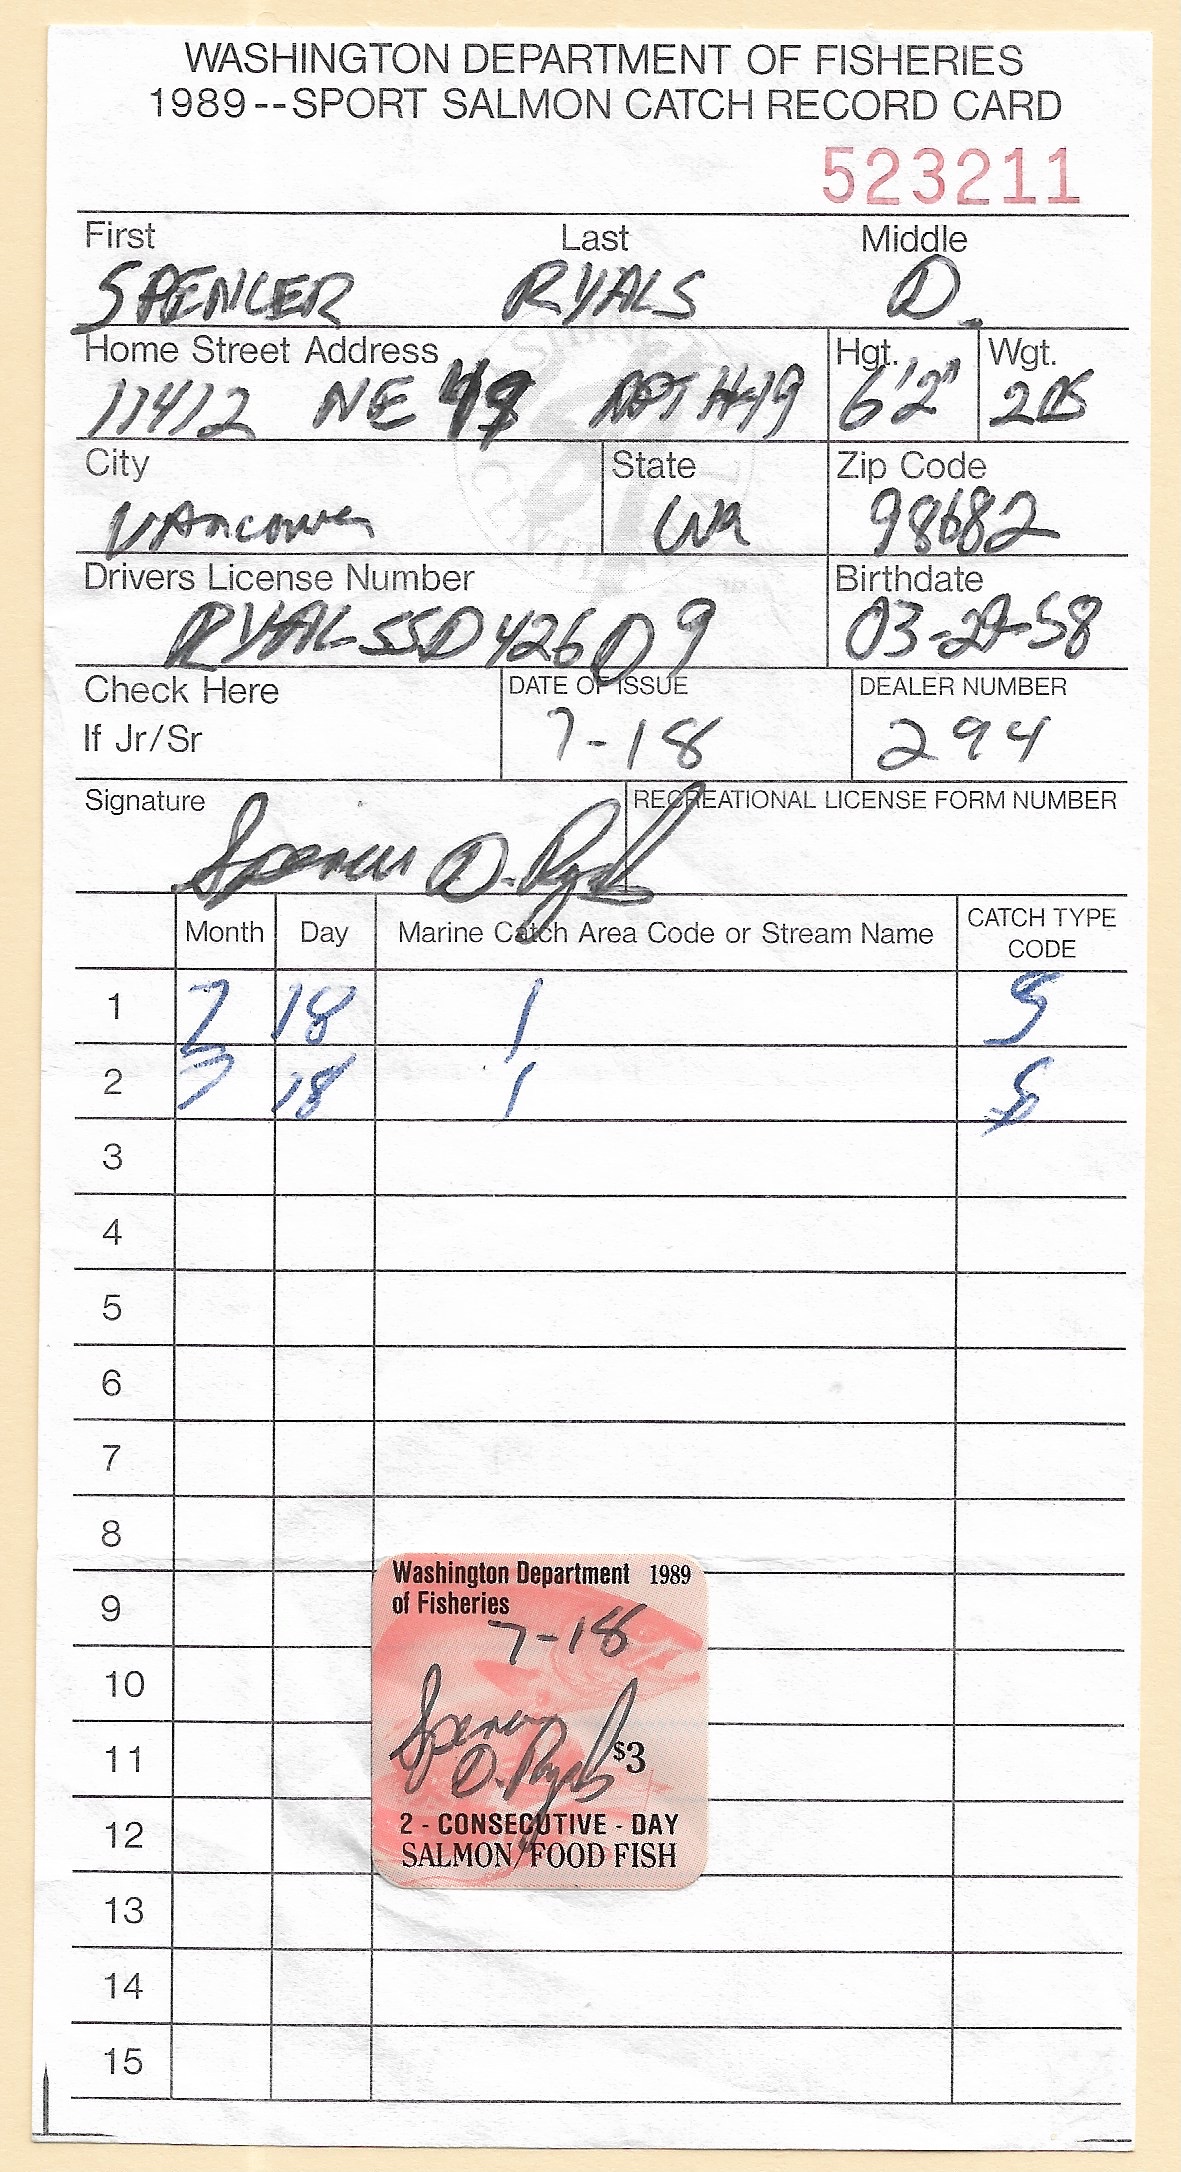 WASHINGTON DEPARTMENT OF FISHERIES
1989--SPORT SALMON CATCH RECORD CARD
523211
First Last Middle
SPENCER RYALS D.
Home Street Address Hgt. Wgt.
11412 NE 49 APT H-49 6'2" 205
City State Zip Code
VANCOUVER WA 98682
Drivers License Number Birthdate
RYALSSD426D9 03-29-58
Check Here DATE OF ISSUE DEALER NUMBER
If Jr/Sr 7-18 294
Signature RECREATIONAL LICENSE FORM NUMBER
Spencer D. Ryals
Month Day Marine Catch Area Code or Stream Name CATCH TYPE CODE
1 7 18 1 S
2 7 18 1 S
3
4
5
6
7
8
Washington Department 1989
9
of Fisheries
7-18
10
Spencer
11 D. Ryals $3
12 2 - CONSECUTIVE - DAY
SALMON/FOOD FISH
13
14
15